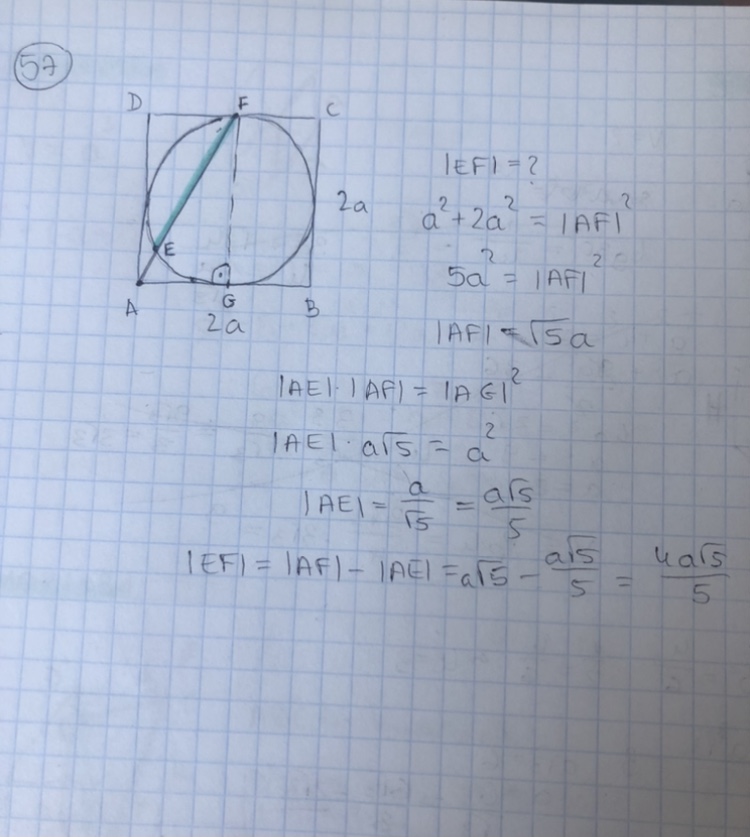 57
D F C
|EF| = ?
2a
a² + 2a² = |AF|²
E
5a² = |AF|²
A G B
2a
|AF| = √5a
|AE| · |AF| = |AG|²
|AE| · a√5 = a²
|AE| = a/√5 = a√5/5
|EF| = |AF| - |AE| = a√5 - a√5/5 = 4a√5/5